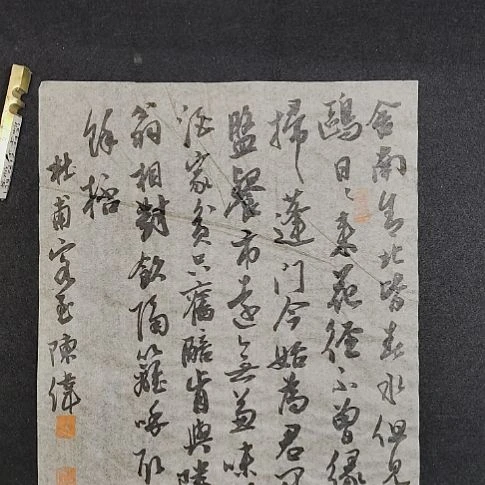 舍南舍北皆春水但見
鷗日日來花徑不曾緣
掃蓬門今始為君開
盤飧市遠無兼味
酒家貧只舊醅肯與隣
翁相對飲隔籬呼取
餘杯
杜甫客至陳偉